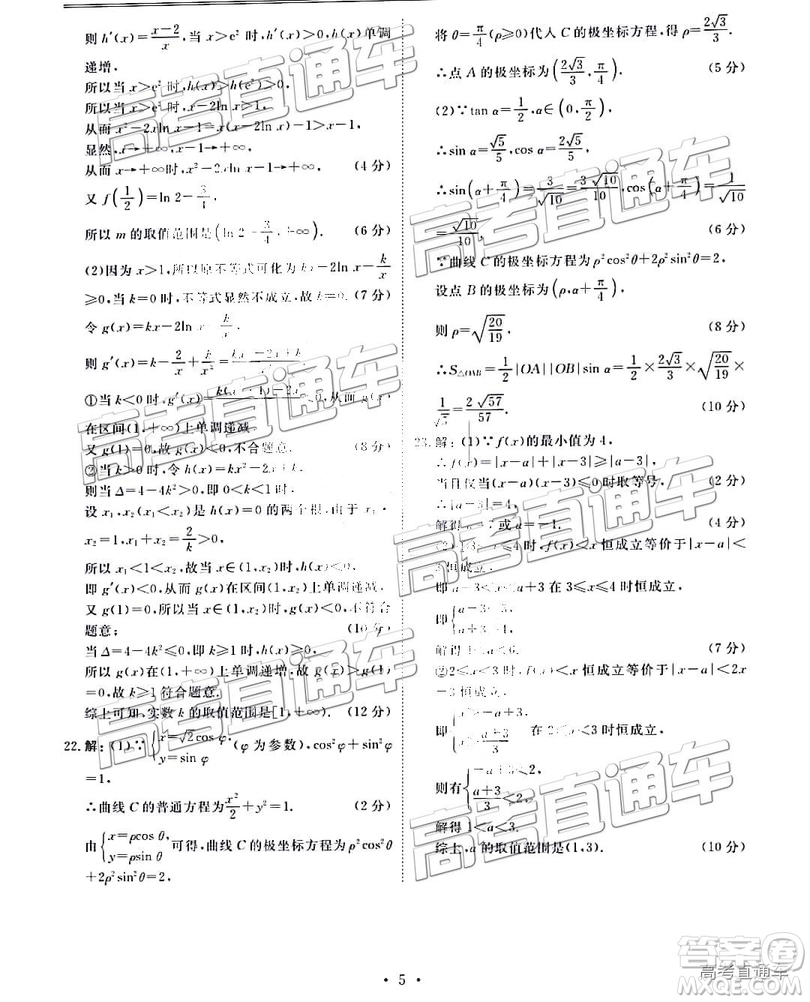 则 h′(x)=(x-2)/x，当 x>e² 时，h′(x)>0，h(x)单调
递增，
所以当 x>e² 时，h(x)>h(e²)>0，
所以当 x-2ln x>1，
从而 x²-2xln x-1=x(x-2ln x)-1>x-1，
显然，x→+∞，x-1→+∞，
从而 x→+∞ 时，x²-2xln x-1→+∞， (4 分)
又 f(1/2)=ln 2-3/4，
所以 m 的取值范围是(ln 2-3/4，+∞)． (6 分)
(2)因为 x>1，所以原不等式可化为 kx-2ln x-k/x
≥0，当 k=0 时，不等式显然不成立，故 k≠0. (7 分)
令 g(x)=kx-2ln x-k/x，
则 g′(x)=k-2/x+k/x²=
①当 k<0 时，g′(x)= <0，从而 g(x)
在区间(1，+∞)上单调递减，
又 g(1)=0，故 g(x)<0，不合题意． (8 分)
②当 k>0 时，令 h(x)=kx²-2x+k，
则当 Δ=4-4k²>0，即 0<k<1 时，
设 x₁，x₂(x₁<x₂)是 h(x)=0 的两个根，由于 x₁·
x₂=1，x₁+x₂=2/k>0，
故 0<x₁<1<x₂，故当 x∈(1，x₂)时，h(x)<0，
即 g′(x)<0，从而 g(x)在区间(1，x₂)上单调递减，
又 g(1)=0，所以当 x∈(1，x₂)时，g(x)<0，不符合
题意； (10 分)
当 Δ=4-4k²≤0，即 k≥1 时，h(x)≥0，
所以 g(x)在(1，+∞)上单调递增，故 g(x)>g(1)
=0，故 k≥1 符合题意．
综上可知，实数 k 的取值范围是[1，+∞)． (12 分)
22. 解：(1)∵{x=√2cos φ，y=sin φ (φ 为参数)，cos²φ+sin²φ
=1，
∴曲线 C 的普通方程为 x²/2+y²=1. (2 分)
由{x=ρcos θ，y=ρsin θ 可得，曲线 C 的极坐标方程为 ρ²cos²θ
+2ρ²sin²θ=2，
将 θ=π/4(ρ≥0)代入 C 的极坐标方程，得 ρ=2√3/3.
∴点 A 的极坐标为(2√3/3，π/4)． (5 分)
(2)∵tan α=1/2，α∈(0，π/2)，
∴sin α=1/√5，cos α=2√5/5，
∴sin(α+π/4)=3/√10=3√10/10，cos(α+π/4)=1/√10
=√10/10， (6 分)
∵曲线 C 的极坐标方程为 ρ²cos²θ+2ρ²sin²θ=2，
设点 B 的极坐标为(ρ，α+π/4)，
则 ρ=√(20/19)， (8 分)
∴S△OAB=1/2|OA||OB|sin α=1/2×2√3/3×√(20/19)×
1/√5=2√57/57. (10 分)
23. 解：(1)∵f(x)的最小值为 4，
∴f(x)=|x-a|+|x-3|≥|a-3|，
当且仅当(x-a)(x-3)≤0 时取等号， (2 分)
∴|a-3|=4，
解得 a=7 或 a=-1. (4 分)
(2)①3≤x≤4 时，f(x)<x 恒成立等价于|x-a|<
3 恒成立，
即 a-3<x<a+3 在 3≤x≤4 时恒成立，
即{a-3<3，a+3>4，
解得 1<a<6. (7 分)
②2≤x<3 时，f(x)<x 恒成立等价于|x-a|<2x
-3 恒成立，
即 在 2≤x<3 时恒成立，
则有{-a+3<2，(a+3)/3<2，
解得 1<a<3.
综上，a 的取值范围是(1，3)． (10 分)
· 5 ·
高考直通车
高考直通车
高考直通车
高考直通车
高考直通车
高考直通车
高考直通车
答案圈
高考直通车
MXQE.COM